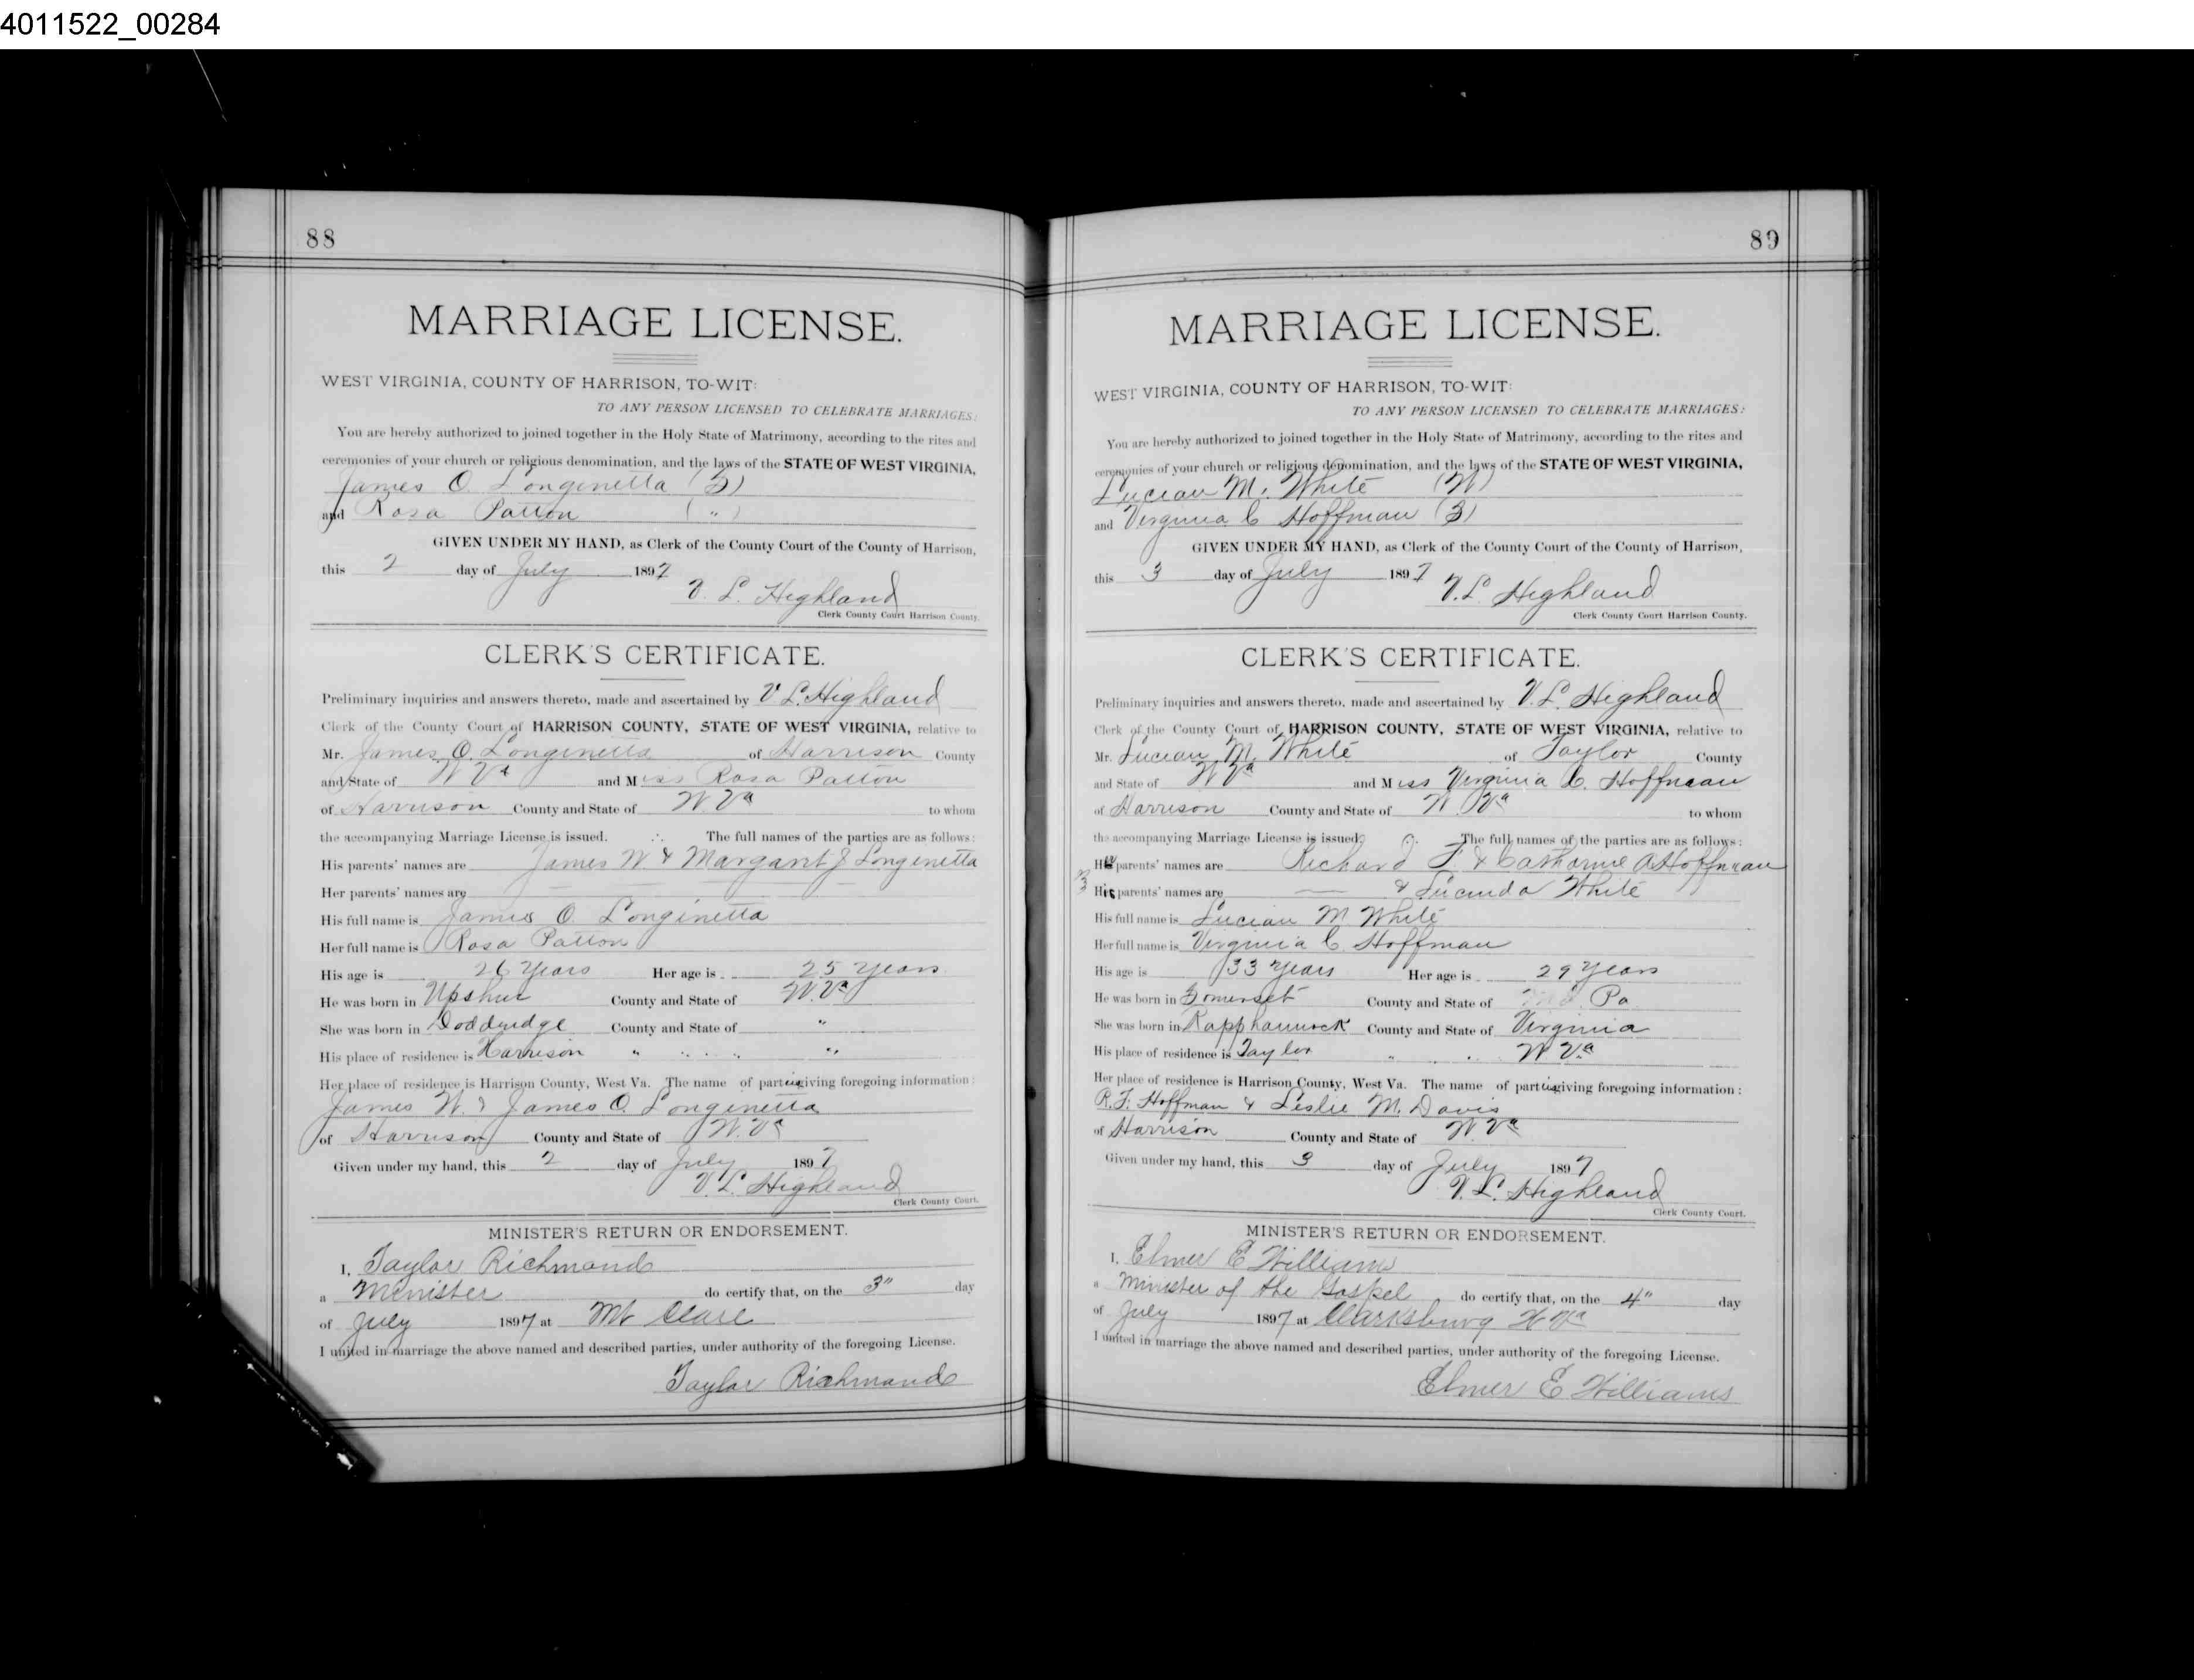 4011522_00284
88
MARRIAGE LICENSE.
WEST VIRGINIA, COUNTY OF HARRISON, TO-WIT:
TO ANY PERSON LICENSED TO CELEBRATE MARRIAGES:
You are hereby authorized to joined together in the Holy State of Matrimony, according to the rites and
ceremonies of your church or religious denomination, and the laws of the STATE OF WEST VIRGINIA,
James O. Longinetta (S)
and Rosa Patton ( " )
GIVEN UNDER MY HAND, as Clerk of the County Court of the County of Harrison,
this 2 day of July 1897
V. L. Highland
Clerk County Court Harrison County.
CLERK'S CERTIFICATE.
Preliminary inquiries and answers thereto, made and ascertained by V. L. Highland
Clerk of the County Court of HARRISON COUNTY, STATE OF WEST VIRGINIA, relative to
Mr. James O. Longinetta of Harrison County
and State of W Va and Miss Rosa Patton
of Harrison County and State of W Va to whom
the accompanying Marriage License is issued. The full names of the parties are as follows:
His parents' names are James W. & Margaret J Longinetta
Her parents' names are
His full name is James O. Longinetta
Her full name is Rosa Patton
His age is 26 Years Her age is 25 Years
He was born in Upshur County and State of W. Va
She was born in Doddridge County and State of "
His place of residence is Harrison " " " " "
Her place of residence is Harrison County, West Va. The name of parties giving foregoing information:
James W. & James O. Longinetta
of Harrison County and State of W. Va
Given under my hand, this 2 day of July 1897
V. L. Highland
Clerk County Court.
MINISTER'S RETURN OR ENDORSEMENT.
I, Taylor Richmond
a Minister do certify that, on the 3" day
of July 1897 at Mt Clare
I united in marriage the above named and described parties, under authority of the foregoing License.
Taylor Richmond
89
MARRIAGE LICENSE.
WEST VIRGINIA, COUNTY OF HARRISON, TO-WIT:
TO ANY PERSON LICENSED TO CELEBRATE MARRIAGES:
You are hereby authorized to joined together in the Holy State of Matrimony, according to the rites and
ceremonies of your church or religious denomination, and the laws of the STATE OF WEST VIRGINIA,
Lucian M. White (W)
and Virginia C Hoffman (S)
GIVEN UNDER MY HAND, as Clerk of the County Court of the County of Harrison,
this 3 day of July 1897
V. L. Highland
Clerk County Court Harrison County.
CLERK'S CERTIFICATE.
Preliminary inquiries and answers thereto, made and ascertained by V. L. Highland
Clerk of the County Court of HARRISON COUNTY, STATE OF WEST VIRGINIA, relative to
Mr. Lucian M. White of Taylor County
and State of W Va and Miss Virginia C. Hoffman
of Harrison County and State of W. Va to whom
the accompanying Marriage License is issued. The full names of the parties are as follows:
Her parents' names are Richard F. & Catharine A Hoffman
His parents' names are & Lucinda White
His full name is Lucian M. White
Her full name is Virginia C. Hoffman
His age is 33 Years Her age is 29 Years
He was born in Somerset County and State of Pa
She was born in Rapphannock County and State of Virginia
His place of residence is Taylor " " W Va
Her place of residence is Harrison County, West Va. The name of parties giving foregoing information:
R. F. Hoffman & Leslie M. Davis
of Harrison County and State of W. Va
Given under my hand, this 3 day of July 1897
V. L. Highland
Clerk County Court.
MINISTER'S RETURN OR ENDORSEMENT.
I, Elmer E Williams
a Minister of the Gospel do certify that, on the 4" day
of July 1897 at Clarksburg W Va
I united in marriage the above named and described parties, under authority of the foregoing License.
Elmer E Williams